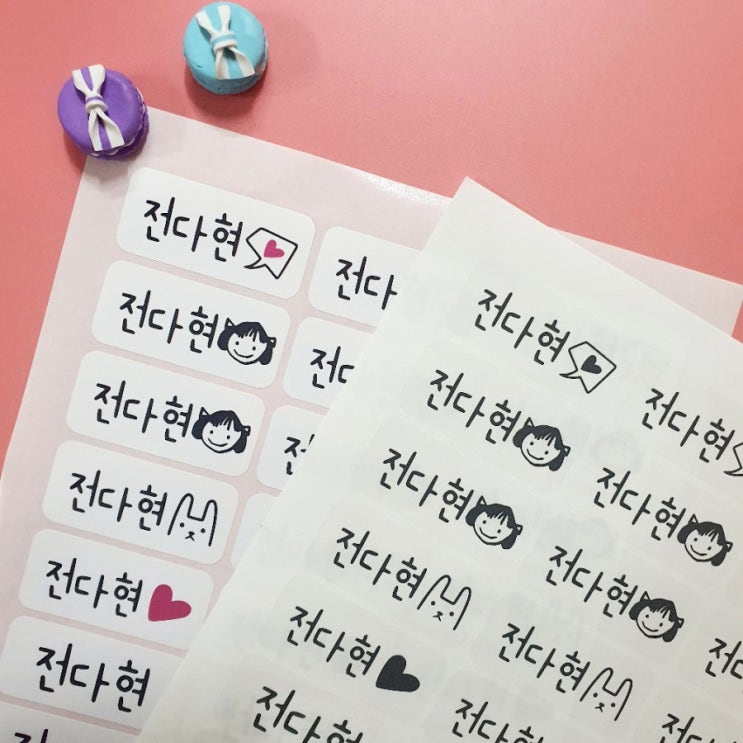 전다현
전다현
전다현
전다현
전다현
전다현
전다현 전다현
전다현 전다현
전다현 전다현
전다현 전다현
전다현 전다현
전다현